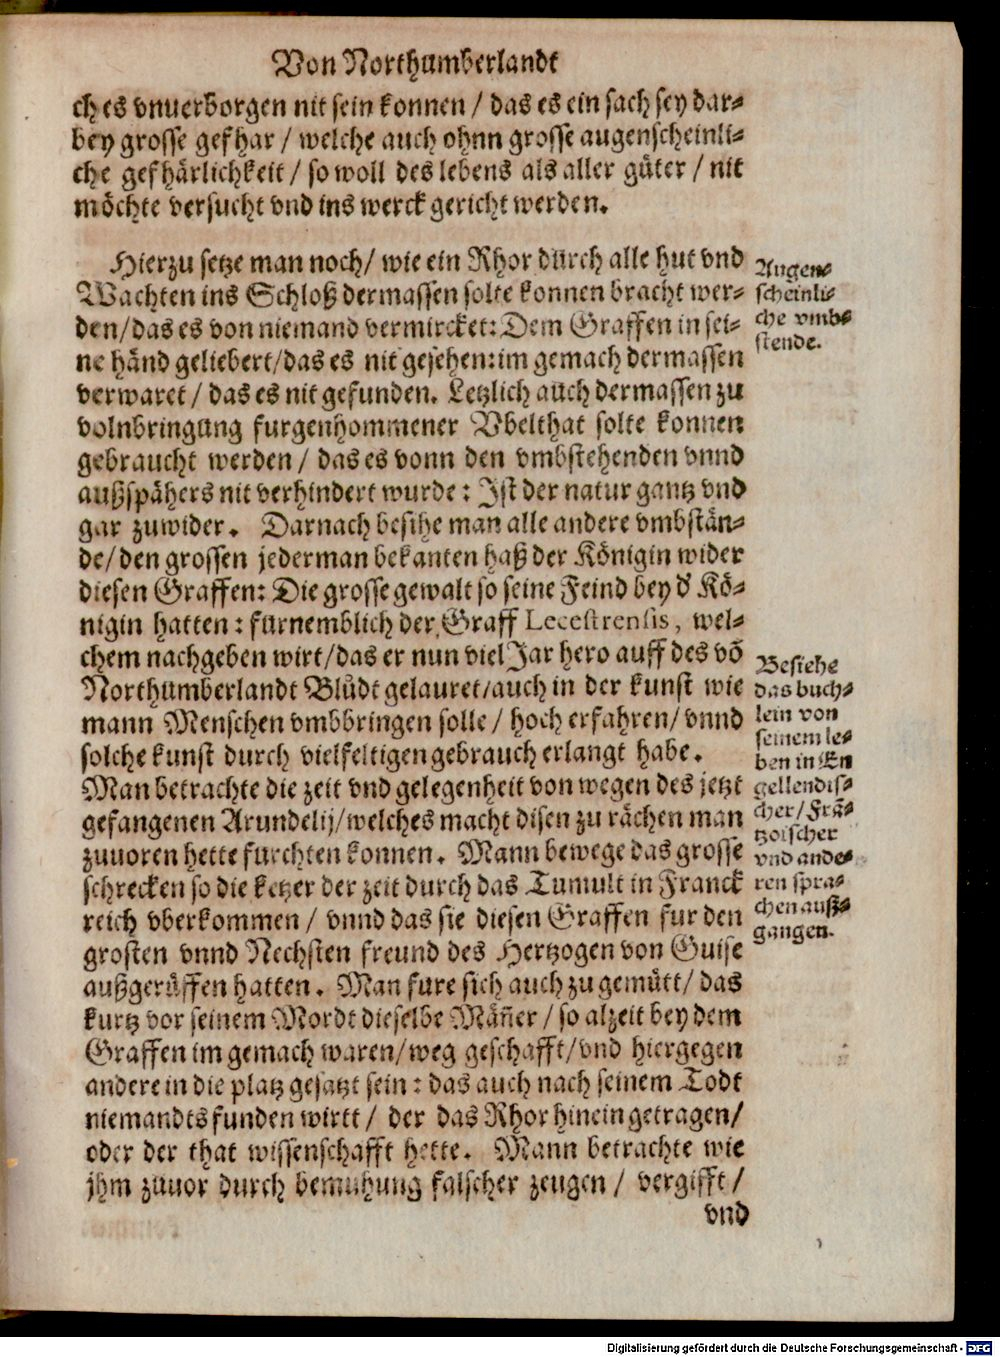 Von Northumberlandt
ch es vnuerborgen nit sein konnen / das es ein sach sey dar-
bey grosse gefhar / welche auch ohnn grosse augenscheinli-
che gefhärlichkeit / so woll des lebens als aller güter / nit
möchte versucht vnd ins werck gericht werden.
Hierzu setze man noch / wie ein Rhor durch alle hut vnd
Wachten ins Schloß dermassen solte konnen bracht wer-
den / das es von niemand vermircket: Dem Graffen in sei-
ne händ geliebert / das es nit gesehen: im gemach dermassen
verwaret / das es nit gefunden. Letzlich auch dermassen zu
volnbringung furgenhommener Vbelthat solte konnen
gebraucht werden / das es vonn den vmbstehenden vnnd
außspähers nit verhindert wurde: Ist der natur gantz vnd
gar zuwider. Darnach besihe man alle andere vmbstän-
de / den grossen jederman bekanten haß der Königin wider
diesen Graffen: Die grosse gewalt so seine Feind bey d' Kö-
nigin hatten: fürnemblich der Graff Lecestrensis, wel-
chem nachgeben wirt / das er nun viel Jar hero auff des võ
Northumberlandt Blůdt gelauret / auch in der kunst wie
mann Menschen vmbbringen solle / hoch erfahren / vnnd
solche kunst durch vielfeltigen gebrauch erlangt habe.
Man betrachte die zeit vnd gelegenheit von wegen des jetzt
gefangenen Arundelij / welches macht disen zu rächen man
zuuoren hette furchten konnen. Mann bewege das grosse
schrecken so die ketzer der zeit durch das Tumult in Franck
reich vberkommen / vnnd das sie diesen Graffen fur den
grosten vnnd Nechsten freund des Hertzogen von Guise
außgerüffen hatten. Man fure sich auch zu gemütt / das
kurtz vor seinem Mordt dieselbe Mäñer / so alzeit bey dem
Graffen im gemach waren / weg geschafft / vnd hiergegen
andere in die platz gesatzt sein: das auch nach seinem Todt
niemandts funden wirtt / der das Rhor hinein getragen /
oder der that wissenschafft hette. Mann betrachte wie
jhm zuuor durch bemuhung falscher zeugen / vergifft /
vnd
Augen-
scheinli-
che vmb-
stende.
Besiehe
das buch-
lein von
seinem le-
ben in En
gellendis-
cher / Frã-
tzoischer
vnd ande-
ren spra-
chen auß-
gangen.
Digitalisierung gefördert durch die Deutsche Forschungsgemeinschaft - DFG